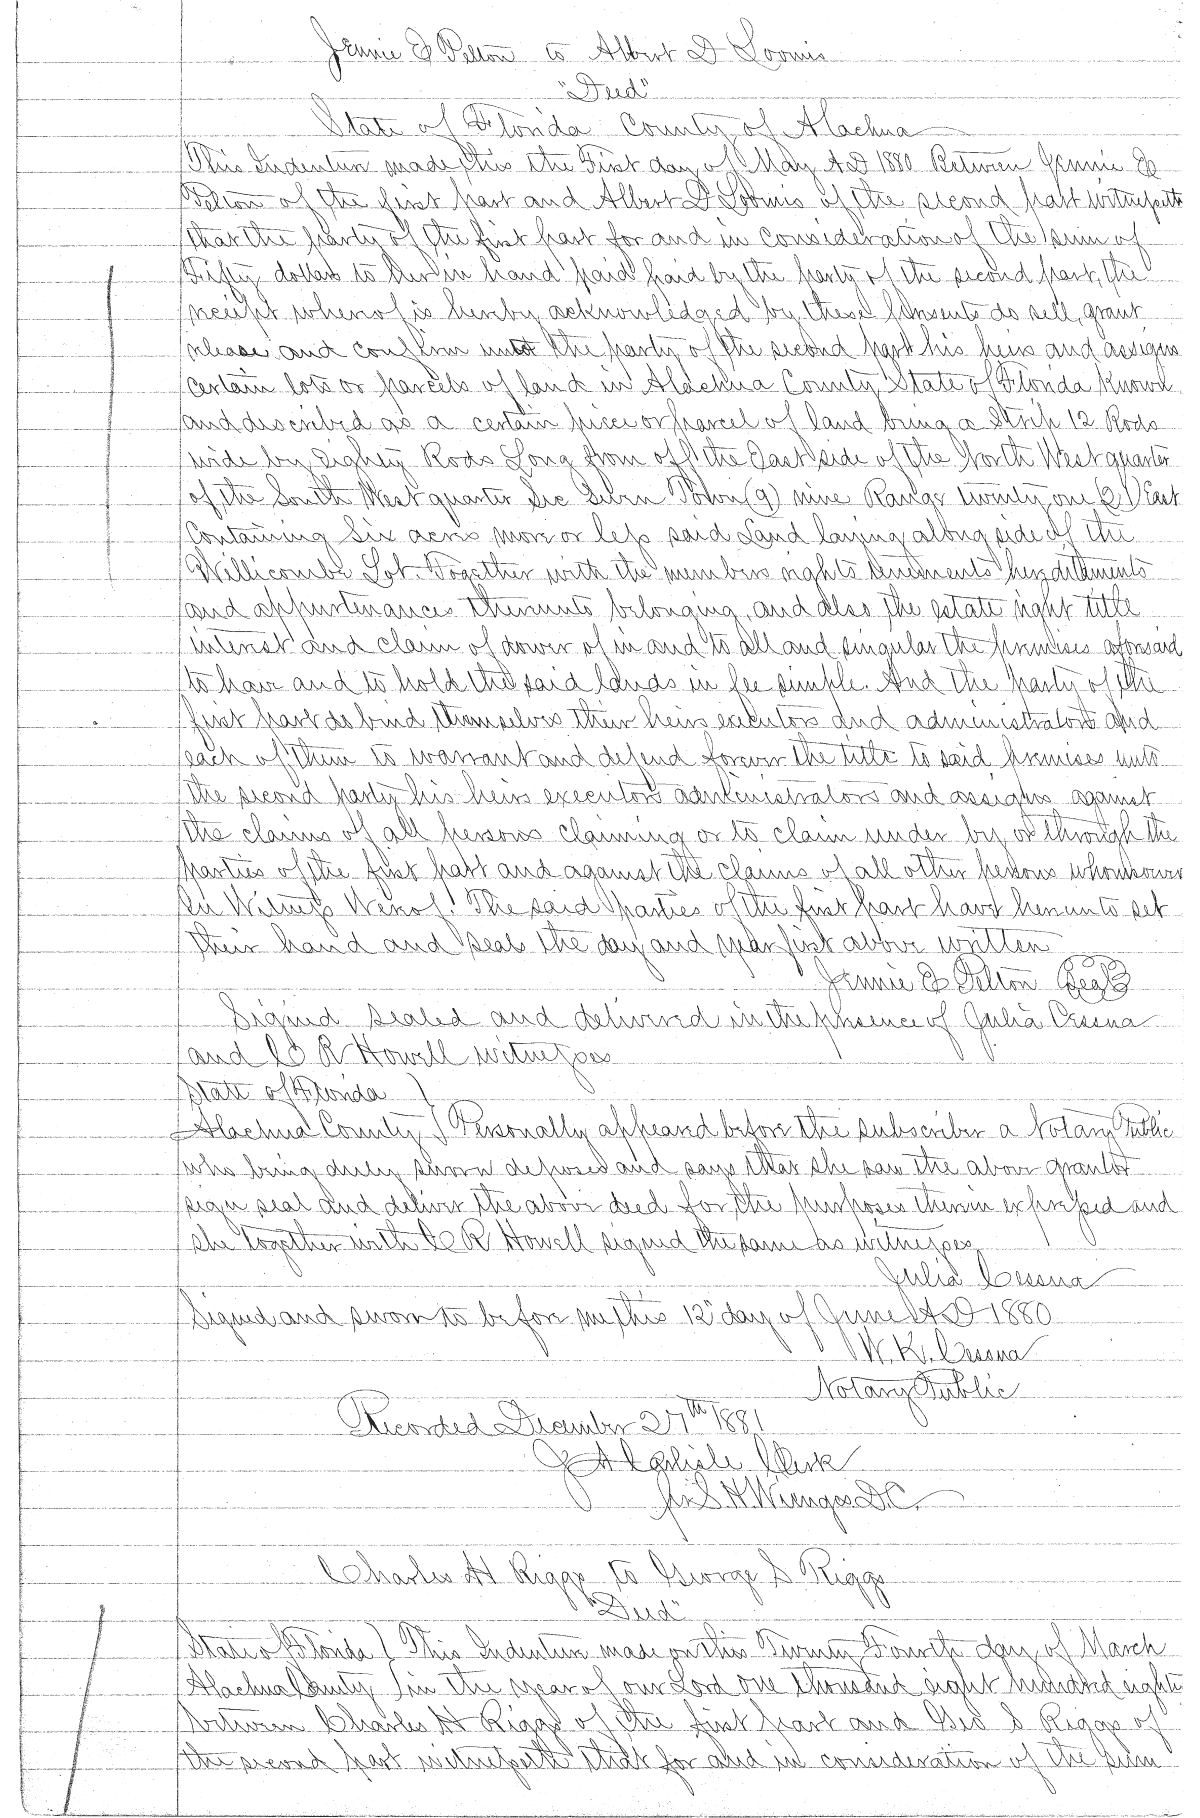 Jennie E Pelton to Albert D Loomis
"Deed"
State of Florida County of Alachua
This Indenture made this the First day of May A.D 1880 Between Jennie E
Pelton of the first part and Albert D Loomis of the second part witnesseth
that the party of the first part for and in consideration of the sum of
Fifty dollars to her in hand paid paid by the party of the second part, the
receipt whereof is hereby acknowledged by these presents do sell, grant
release and confirm unto the party of the second part his heirs and assigns
certain lots or parcels of land in Alachua County State of Florida known
and described as a certain piece or parcel of land being a Strip 12 Rods
wide by Eighty Rods Long from off the East side of the North West quarter
of the South West quarter Sec Seven Town (9) nine Range twenty one (21) East
Containing Six acres more or less said Land laying along side of the
Willicombs Lot. Together with the members rights tenements hereditaments
and appurtenances thereunto belonging, and also the estate right title
interest and claim of dower of in and to all and singular the premises aforesaid
to have and to hold the said lands in fee simple. And the party of the
first part do bind themselves their heirs executors and administrators and
each of them to warrant and defend forever the title to said premises unto
the second party his heirs executors administrators and assigns against
the claims of all persons claiming or to claim under by or through the
parties of the first part and against the claims of all other persons whomsoever
In Witness Wereof. The said parties of the first part have hereunto set
their hand and seals the day and year first above written
Jennie E Pelton Seal
Signed sealed and delivered in the presence of Julia Cessna
and C R Howell witnesses
State of Florida )
Alachua County ) Personally appeared before the subscriber a Notary Public
who being duly sworn deposes and says that she saw the above grantor
sign seal and deliver the above deed for the purposes therein expressed and
she together with C R Howell signed the same as witnesses
Julia Cessna
Signed and sworn to before me this 12" day of June A D 1880
W. K. Cessna
Notary Public
Recorded December 27th 1881
J A Carlisle Clerk
per S. H. D.C.
Charles H Riggs to George S Riggs
"Deed"
State of Florida ) This Indenture made on this Twenty Fourth day of March
Alachua County ) in the year of our Lord one thousand eight hundred eighty
between Charles H Riggs of the first part and Geo S Riggs of
the second part witnesseth that for and in consideration of the sum